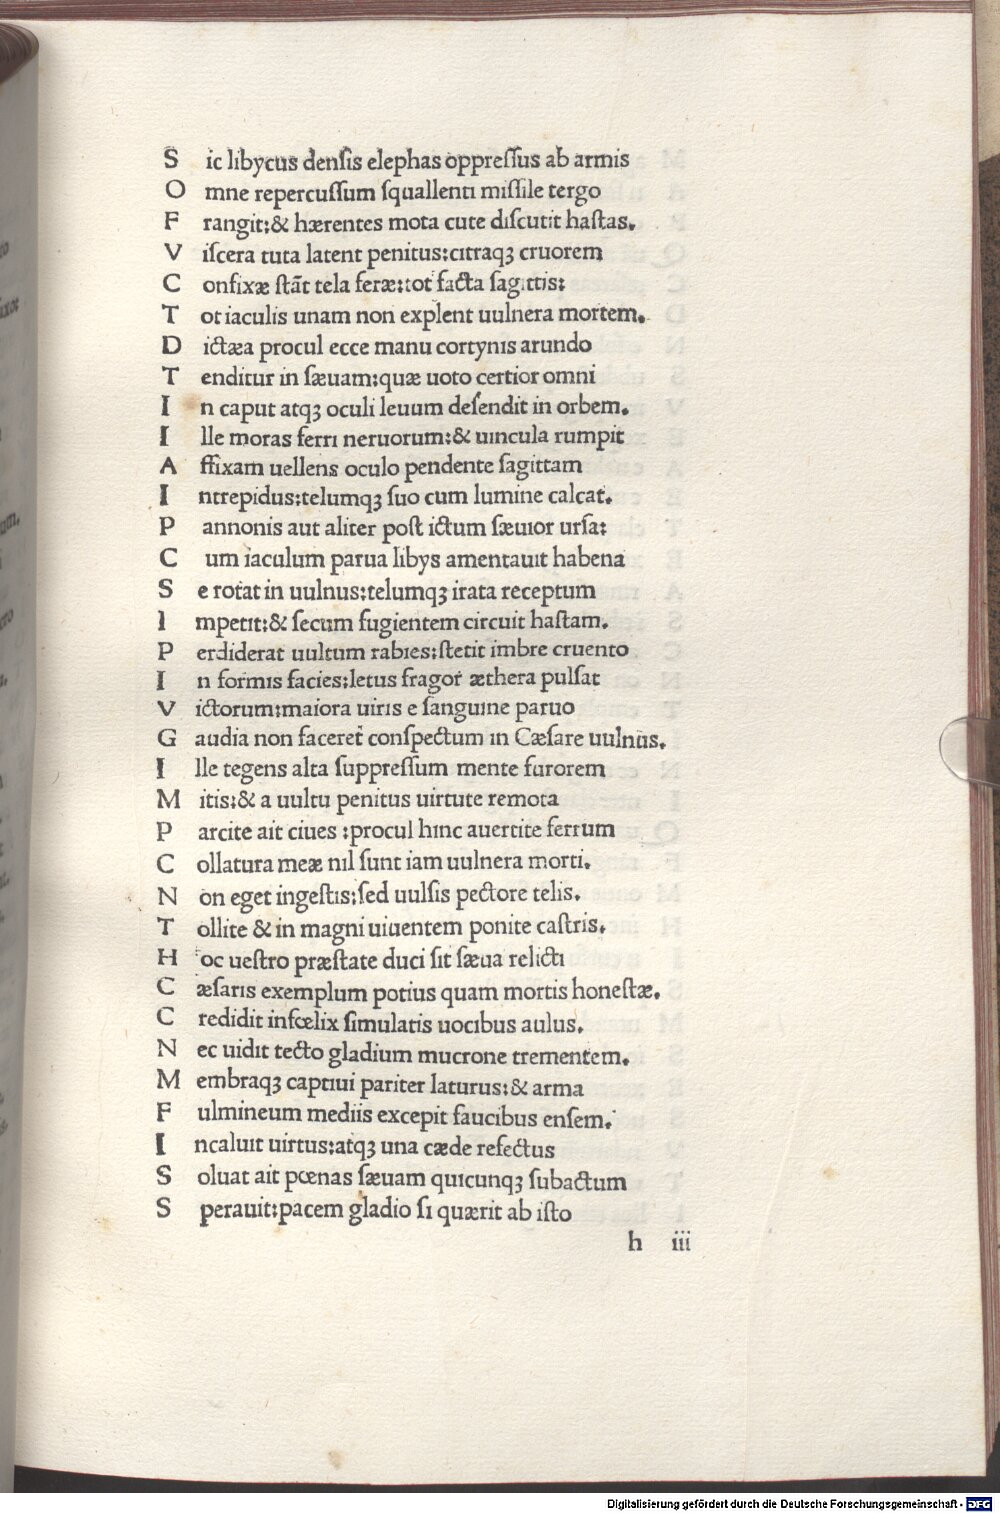 S ic libycus densis elephas oppressus ab armis
O mne repercussum squallenti missile tergo
F rangit:& hærentes mota cute discutit hastas.
V iscera tuta latent penitus:citraqꝫ cruorem
C onfixæ stãt tela feræ:tot facta sagittis:
T ot iaculis unam non explent uulnera mortem.
D ictæa procul ecce manu cortynis arundo
T enditur in sæuam:quæ uoto certior omni
I n caput atqꝫ oculi leuum desendit in orbem.
I lle moras ferri neruorum:& uincula rumpit
A ffixam uellens oculo pendente sagittam
I ntrepidus:telumqꝫ suo cum lumine calcat.
P annonis aut aliter post ictum sæuior ursa:
C um iaculum parua libys amentauit habena
S e rotat in uulnus:telumqꝫ irata receptum
I mpetit:& secum fugientem circuit hastam.
P erdiderat uultum rabies:stetit imbre cruento
I n formis facies:letus fragor æthera pulsat
V ictorum:maiora uiris e sanguine paruo
G audia non faceret conspectum in Cæsare uulnus.
I lle tegens alta suppressum mente furorem
M itis:& a uultu penitus uirtute remota
P arcite ait ciues :procul hinc auertite ferrum
C ollatura meæ nil sunt iam uulnera morti.
N on eget ingestis:sed uulsis pectore telis.
T ollite & in magni uiuentem ponite castris.
H oc uestro præstate duci sit sæua relicti
C æsaris exemplum potius quam mortis honestæ.
C redidit infœlix simulatis uocibus aulus.
N ec uidit tecto gladium mucrone trementem.
M embraqꝫ captiui pariter laturus:& arma
F ulmineum mediis excepit faucibus ensem.
I ncaluit uirtus:atqꝫ una cæde refectus
S oluat ait pœnas sæuam quicunqꝫ subactum
S perauit:pacem gladio si quærit ab isto
h iii
Digitalisierung gefördert durch die Deutsche Forschungsgemeinschaft - DFG